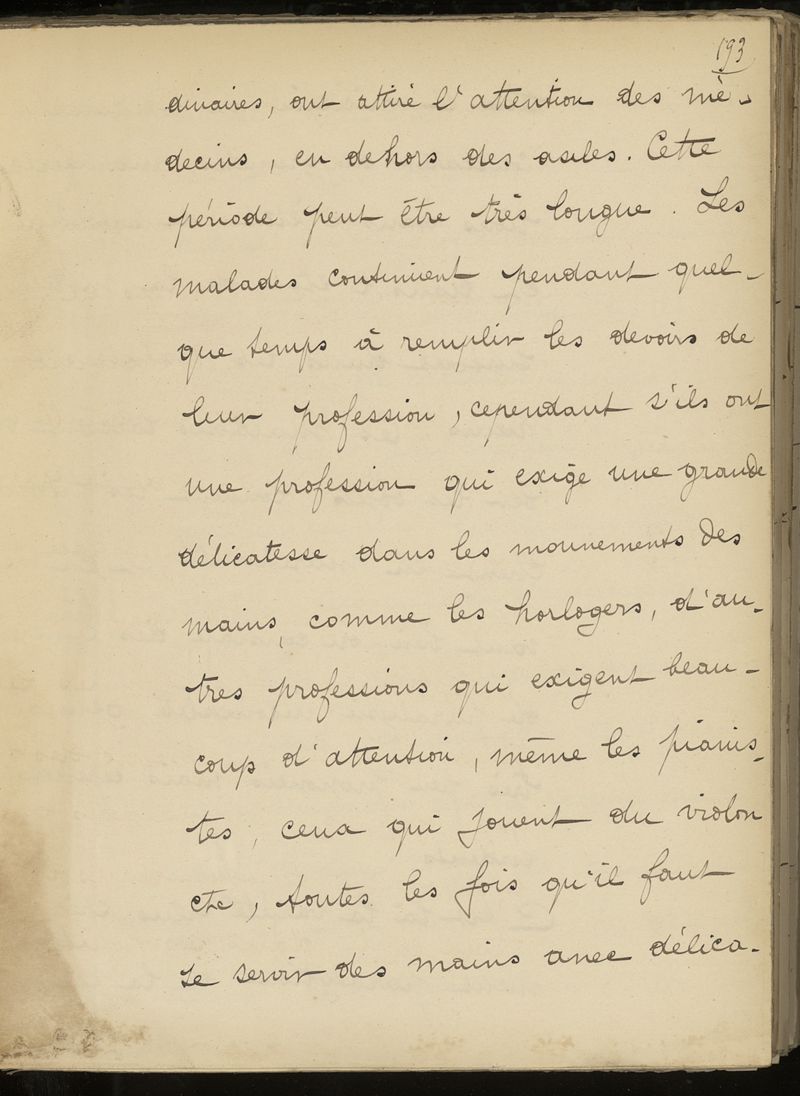 193
dinaires, ont attiré l'attention des mé-
decins, en dehors des asiles. Cette
période peut être très longue. Les
malades continuent pendant quel-
que temps à remplir les devoirs de
leur profession, cependant s'ils ont
une profession qui exige une grande
délicatesse dans les mouvements des
mains, comme les horlogers, d'au-
tres professions qui exigent beau-
coup d'attention, même les pianis-
tes, ceux qui jouent du violon
etc, toutes les fois qu'il faut
se servir des mains avec délica-